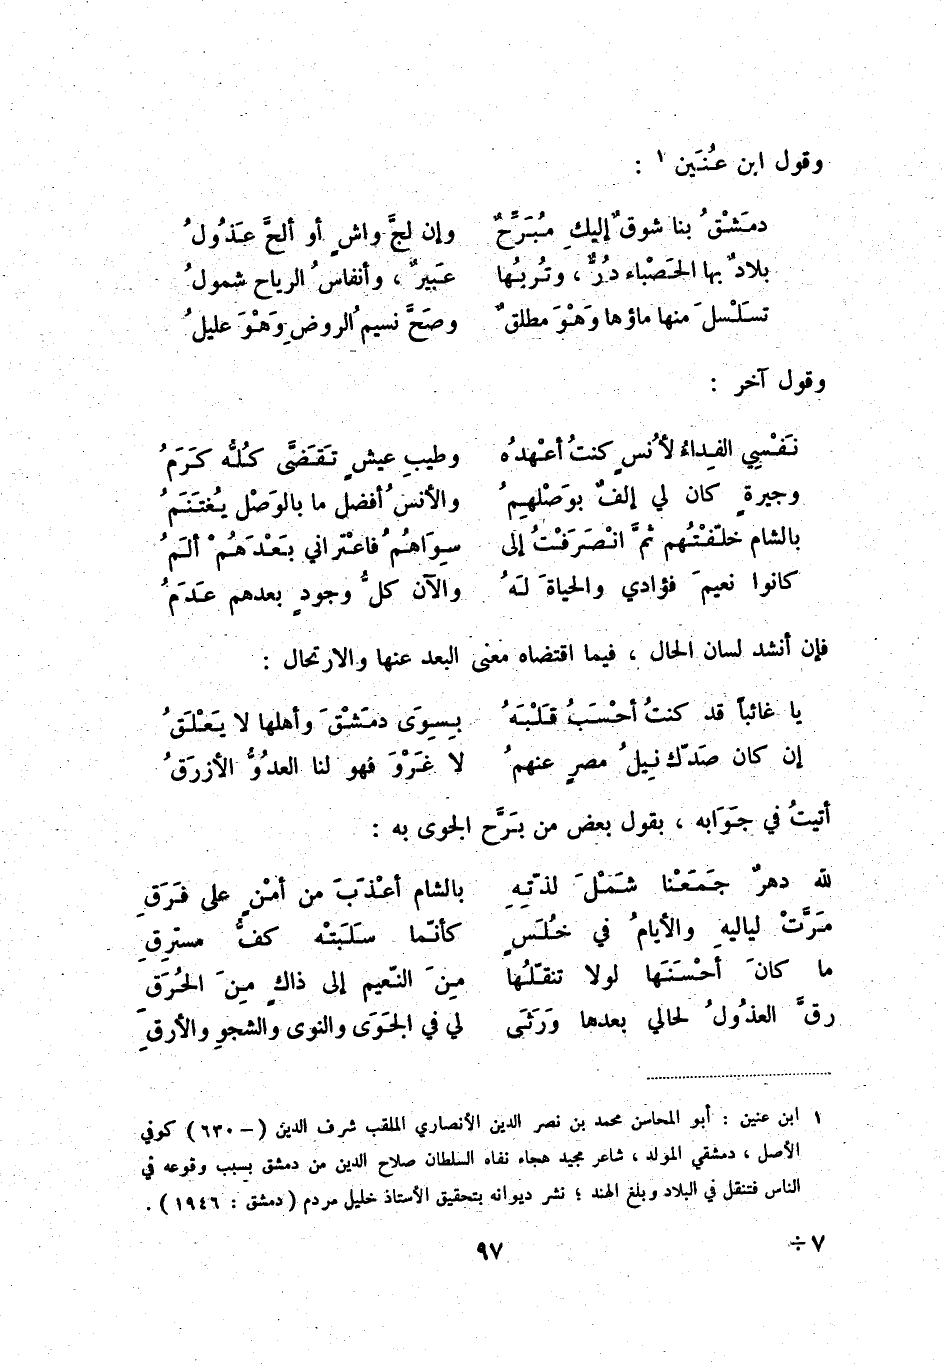 وقول ابن عُنَين ١ :
دمَشْقُ بنا شوقٌ إليكِ مُبَرِّحٌ وإن لجَّ واشٍ أو ألحَّ عَذُولُ
بلادٌ بها الحَصْباء دُرٌّ ، وتُربُها عَبيرٌ ، وأنفاسُ الرياح شمولُ
تسَلْسلَ منها ماؤها وَهْوَ مطلقٌ وصَحَّ نسيمُ الروضِ وَهْوَ عليلُ
وقول آخر :
نَفْسِي الفِداءُ لأُنسٍ كنتُ أعْهدُهُ وطيبِ عيشٍ تَقَضَّى كُلُّه كَرَمُ
وجيرةٍ كان لي إلفٌ بوَصْلهِمُ والأنسُ أفضل ما بالوَصْل يُغتَنَمُ
بالشام خلّفْتُهم ثمَّ انْصَرَفْتُ إلى سِوَاهُمُ فاعْتراني بَعْدَهُمْ ألَمُ
كانوا نعيمَ فؤادي والحياةَ لَهُ والآن كلُّ وجودٍ بعدهم عَدَمُ
فإن أنشد لسان الحال ، فيما اقتضاه معنى البعد عنها والارتحال :
يا غائباً قد كنتُ أحْسَبُ قَلْبَهُ بِسِوَى دمَشْقَ وأهلها لا يَعْلَقُ
إن كان صَدّك نِيلُ مصرٍ عنهمُ لا غَرْوَ فهو لنا العدُوُّ الأزرَقُ
أتيتُ في جَوَابه ، بقول بعض من بَرَّح الجوى به :
لله دهرٌ جَمَعْنا شَمْلَ لذّتِهِ بالشام أعْذَبَ من أمْنٍ على فَرَقِ
مَرَّتْ لياليهِ والأيامُ في خُلَسٍ كأنّما سَلَبَتْه كفُّ مسترِقِ
ما كانَ أحْسَنَها لولا تنقّلُها مِنَ النّعيم إلى ذاكٍ مِنَ الحُرَقِ
رقَّ العذُولُ لحالي بعدها وَرَثَى لي في الجَوَى والنوى والشجوِ والأرقِ
١ ابن عنين : أبو المحاسن محمد بن نصر الدين الأنصاري الملقب شرف الدين ( – ٦٣٠ ) كوفي
الأصل ، دمشقي المولد ، شاعر مجيد هجاء نفاه السلطان صلاح الدين من دمشق بسبب وقوعه في
الناس فتنقل في البلاد وبلغ الهند ؛ نشر ديوانه بتحقيق الأستاذ خليل مردم ( دمشق : ١٩٤٦ ) .
٧ ÷
٩٧